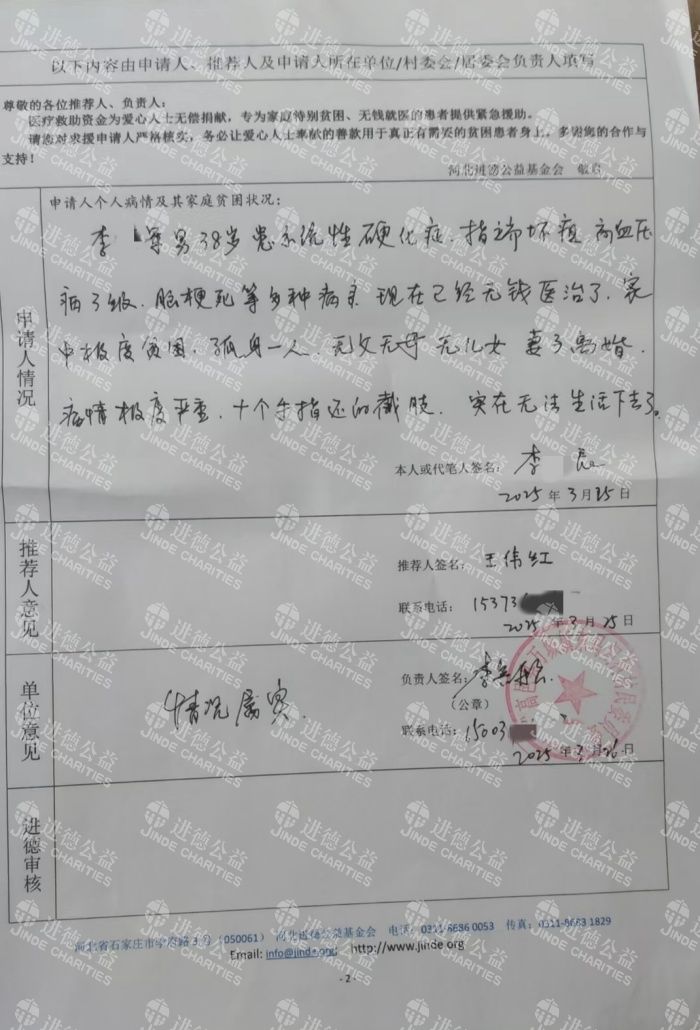 以下内容由申请人、推荐人及申请人所在单位/村委会/居委会负责人填写
尊敬的各位推荐人、负责人：
医疗救助资金为爱心人士无偿捐献，专为家庭特别贫困、无钱就医的患者提供紧急援助。
请您对求援申请人严格核实，务必让爱心人士奉献的善款用于真正有需要的贫困患者身上。多谢您的合作与
支持！
河北进德公益基金会 敬启
申请人情况
申请人个人病情及其家庭贫困状况：
李 军男38岁患系统性硬化症.指端坏疽 高血压
病3级.脑梗死等多种病 现在已经无钱医治了.家
中极度贫困.孤身一人.无父无母 无儿女 妻子离婚.
病情极度严重.十个手指还的截肢.实在无法生活下去了。
本人或代笔人签名：李
2025年3月25日
推荐人意见
推荐人签名：王伟红
联系电话：15373
2025年3月25日
单位意见
情况属实.
负责人签名：李
（公章）
联系电话：15003
2025年3月26日
进德审核
河北省石家庄市学府路3号（050061） 河北进德公益基金会 电话：0311-6686 0053 传真：0311-8663 1829
Email: info@jinde.org; http://www.jinde.org
- 2 -
进德公益
JINDE CHARITIES